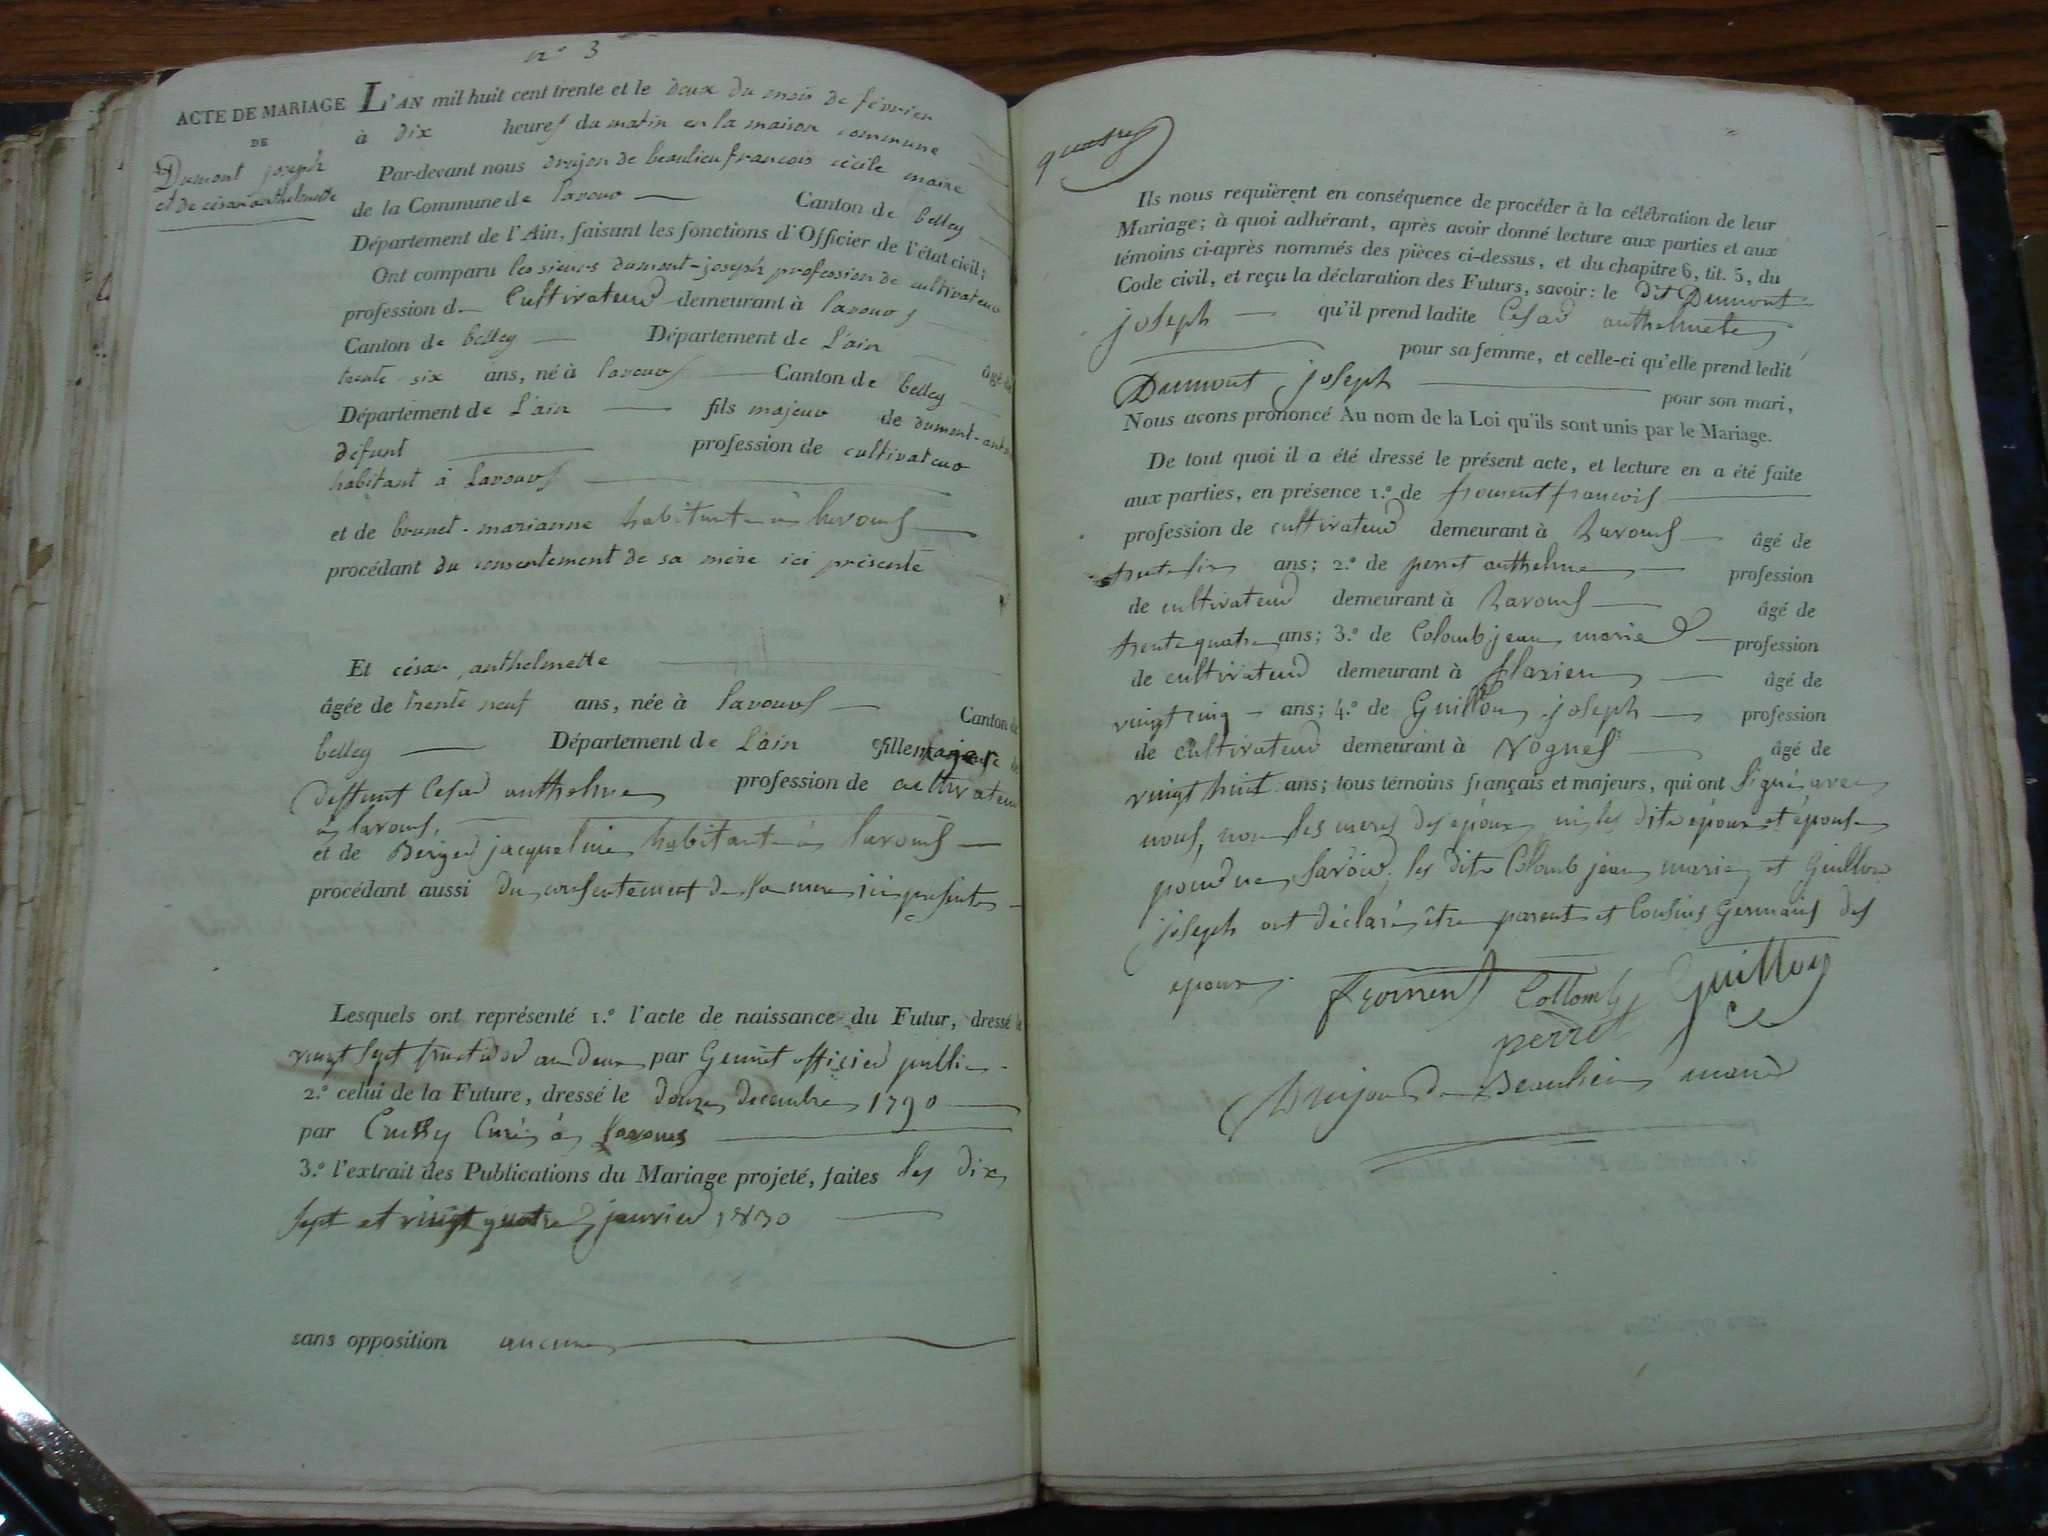 n° 3
ACTE DE MARIAGE
DE
Dumont joseph
et de césar anthelmette
L'AN mil huit cent trente et le deux du mois de février
à dix heures du matin en la maison commune
Par-devant nous drujon de beaulieu francois cécile maire
de la Commune de lavour Canton de belley
Département de l'Ain, faisant les fonctions d'Officier de l'état civil;
Ont comparu les sieurs dumont-joseph profession de cultivateur
profession de Cultivateur demeurant à lavours
Canton de belley Département de L'ain âgé de
trente-six ans, né à lavours Canton de belley
Département de L'ain fils majeur de dumont-
défunt profession de cultivateur
habitant à Lavours
et de brunet-marianne habitante à lavours
procédant du consentement de sa mère ici présente
Et césar anthelmette
âgée de trente neuf ans, née à lavours Canton de
belley Département de L'ain fille majeure de
deffunt Cesar anthelme profession de cultivateur
à lavours,
et de Berger jacqueline habitante à lavours
procédant aussi du consentement de sa mere ici presente
Lesquels ont représenté 1.° l'acte de naissance du Futur, dressé le
vingt sept fructidor an deux par officier public
2.° celui de la Future, dressé le douze decembre 1790
par Curé à Lavours
3.° l'extrait des Publications du Mariage projeté, faites les dix
sept et vingt quatre janvier 1830
sans opposition aucune
Ils nous requièrent en conséquence de procéder à la célébration de leur
Mariage; à quoi adhérant, après avoir donné lecture aux parties et aux
témoins ci-après nommés des pièces ci-dessus, et du chapitre 6, tit. 5, du
Code civil, et reçu la déclaration des Futurs, savoir: le dit Dumont
joseph qu'il prend ladite Cesar anthelmete
pour sa femme, et celle-ci qu'elle prend ledit
Dumont joseph pour son mari,
Nous avons prononcé Au nom de la Loi qu'ils sont unis par le Mariage.
De tout quoi il a été dressé le présent acte, et lecture en a été faite
aux parties, en présence 1.° de froment francois
profession de cultivateur demeurant à Lavours âgé de
trente six ans; 2.° de perret anthelme profession
de cultivateur demeurant à Lavours âgé de
trente quatre ans; 3.° de Colomb jean marie profession
de cultivateur demeurant à flaxieu âgé de
vingt cinq ans; 4.° de Guilloux joseph profession
de cultivateur demeurant à Vognes âgé de
vingt huit ans; tous témoins français et majeurs, qui ont signé avec
nous, non les meres des époux, ni les dits époux et épouse
pour ne savoir; les dits Colomb jean marie et Guilloux
joseph ont déclaré être parents et Cousins Germains des
époux.
froment Collomb Guilloy
perret
Drujon de Beaulieu maire